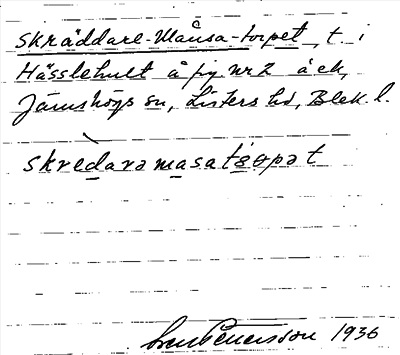 Skräddare-Månsa-torpet, t. i
Hässlehult å pg nr 2 å ek,
Jämshögs sn, Listers hd, Blek. l.
skredarəmasatɔrpət
Sven Benensson 1936